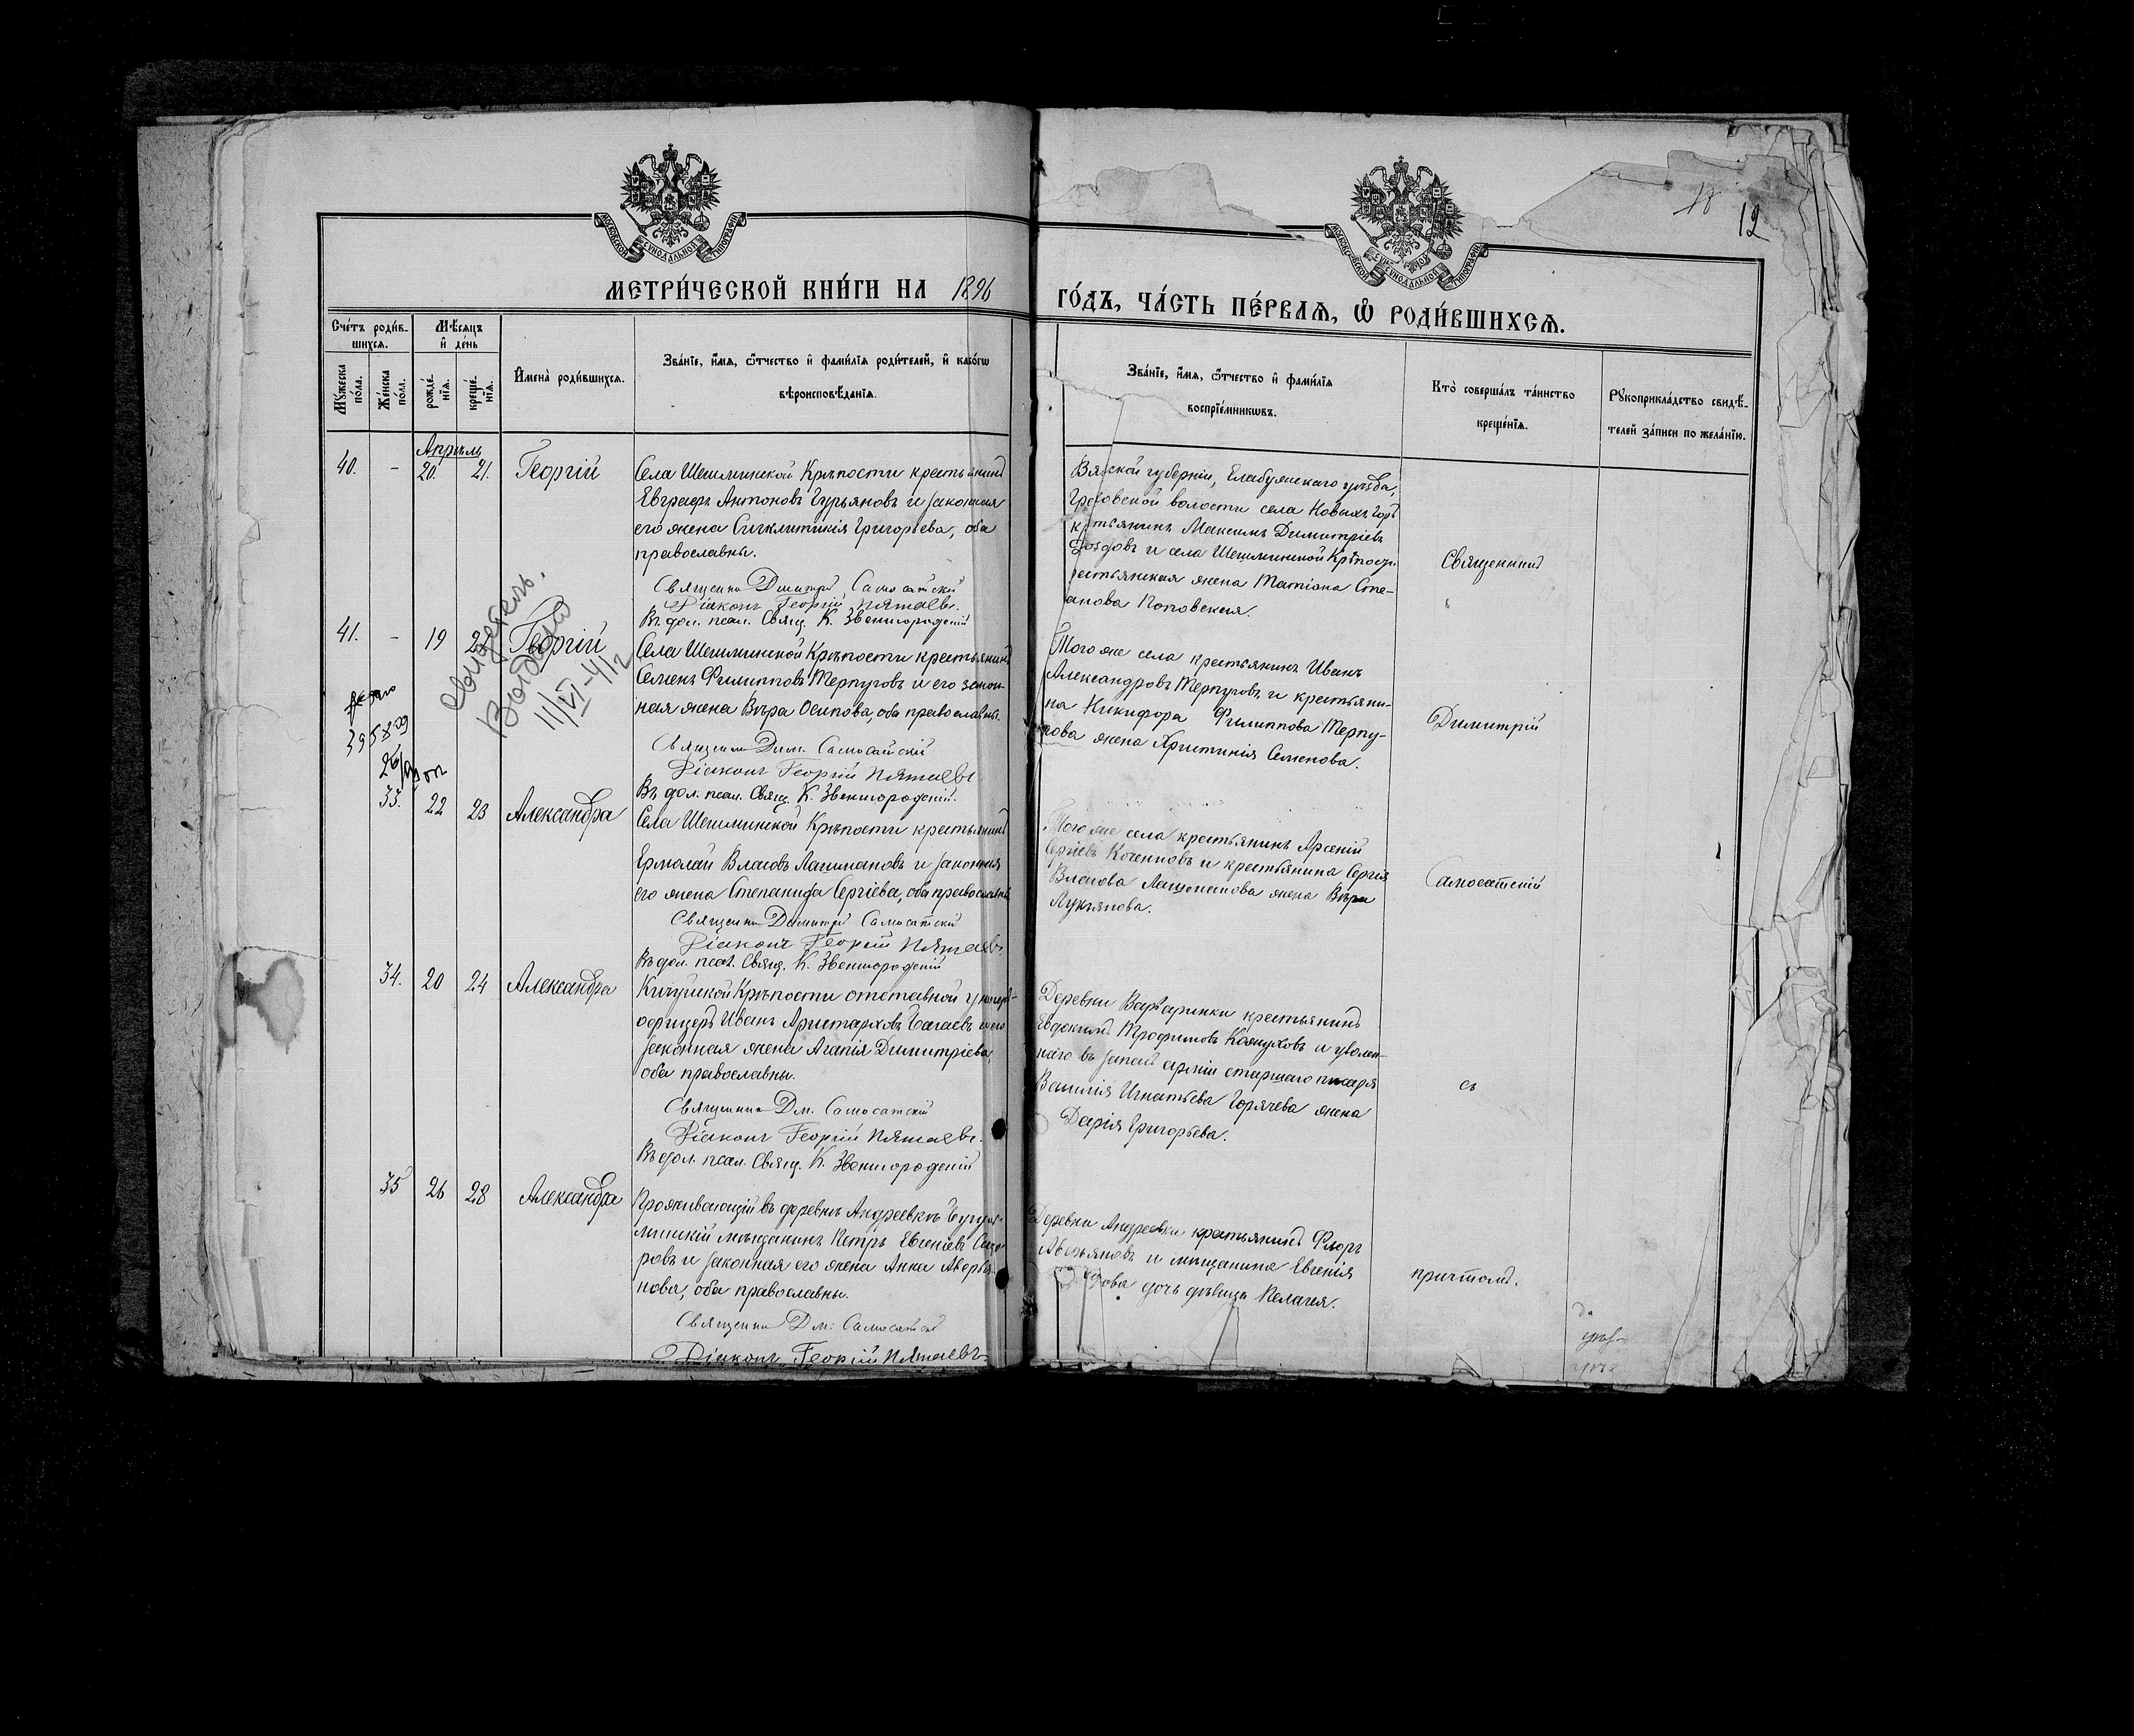 18
12
МОСКОВСКОЙ СѴНОДАЛЬНОЙ ТИПОГРАФІИ
МОСКОВСКОЙ СѴНОДАЛЬНОЙ ТИПОГРАФІИ
МЕТРИ́ЧЕСКОЙ КНИ́ГИ НА 1896
ГО́ДЪ, ЧА́СТЬ ПЕ́РВАѦ, Ѽ РОДИ́ВШИХСѦ.
Сче́тъ роди́в-
шихсѧ.
Мѣ́сѧцъ
и҆ де́нь
Мꙋ́жеска
по́ла.
Же́нска
по́ла.
рожде́-
нїѧ.
креще́-
нїѧ.
И҆мена̀ роди́вшихсѧ.
Зва́нїе, и҆́мѧ, ѻ҆́тчество и҆ фами́лїѧ роди́телей, и҆ како́гѡ
вѣроисповѣ́данїѧ.
Зва́нїе, и҆́мѧ, ѻ҆́тчество и҆ фами́лїѧ
воспрїе́мникѡвъ.
Кто̀ соверша́лъ та́инство
креще́нїѧ.
Рꙋкоприкла́дство свидѣ́-
телей за́писи по жела́нїю.
Апрѣль
40. - 20. 21. Георгій
Села Шешминской Крѣпости крестьянинъ
Евграфъ Антоновъ Гурьяновъ и законная
его жена Сигклитикія Григорьева, оба
православны.
Священникъ Димитрій Самосатскій
Діаконъ Георгій Пятаевъ.
Въ дол. псал. Свящ. К. Звенигородскій
Вятской губерніи, Елабужскаго уѣзда,
волости села Новыхъ Горъ
крестьянинъ Максимъ Димитріевъ
и села Шешминской Крѣпости
крестьянская жена Татіана Сте-
панова Поповская.
Священникъ
41. - 19 Георгій
Села Шешминской Крѣпости крестьянинъ
Семенъ Филипповъ Терпуговъ и его закон-
ная жена Вѣра Осипова, оба православны.
Священникъ Дим. Самосатскій
Діаконъ Георгій Пятаевъ
Въ дол. псал. Свящ. К. Звенигородскій.
Того же села крестьянинъ Иванъ
Александровъ Терпуговъ и крестьяни-
на Никифора Филиппова Терпу-
гова жена Христинія Семенова.
Димитрій
33. 22 23 Александра
Села Шешминской Крѣпости крестьянинъ
Ермолай Власовъ Лашмановъ и законная
его жена Степанида Сергіева, оба православны
Священникъ Димитрій Самосатскій
Діаконъ Георгій Пятаевъ.
Въ дол. псал. Свящ. К. Звенигородскій
Того же села крестьянинъ Арсеній
Сергіевъ и крестьянина Сергія
Власова Лашманова жена Вѣра
Лукьянова.
Самосатскій
34. 20 24 Александра
Кичуйской Крѣпости отставной унтеръ-
офицеръ Иванъ Аристарховъ Багаевъ и его
законная жена Агапія Димитріева,
оба православны.
Священникъ Дм. Самосатскій
Діаконъ Георгій Пятаевъ.
Въ дол. псал. Свящ. К. Звенигородскій
Деревни Варваринки крестьянинъ
Евдокимъ Трофимовъ Кожуховъ и уволен-
наго въ запасъ арміи старшаго писаря
Василія Игнатьева Горячева жена
Дарія Григорьева.
съ
35 26 28 Александра
Проживающій въ деревнѣ Андреевкѣ Бугуль-
минскій мѣщанинъ Петръ Евгеніевъ Сидо-
ровъ и законная его жена Анна Аверья-
нова, оба православны.
Священникъ Дм. Самосатскій
Діаконъ Георгій Пятаевъ
Деревни Андреевки крестьянинъ Флоръ
Аверьяновъ и мѣщанина Евгенія
дочь дѣвица Пелагея.
причтомъ.